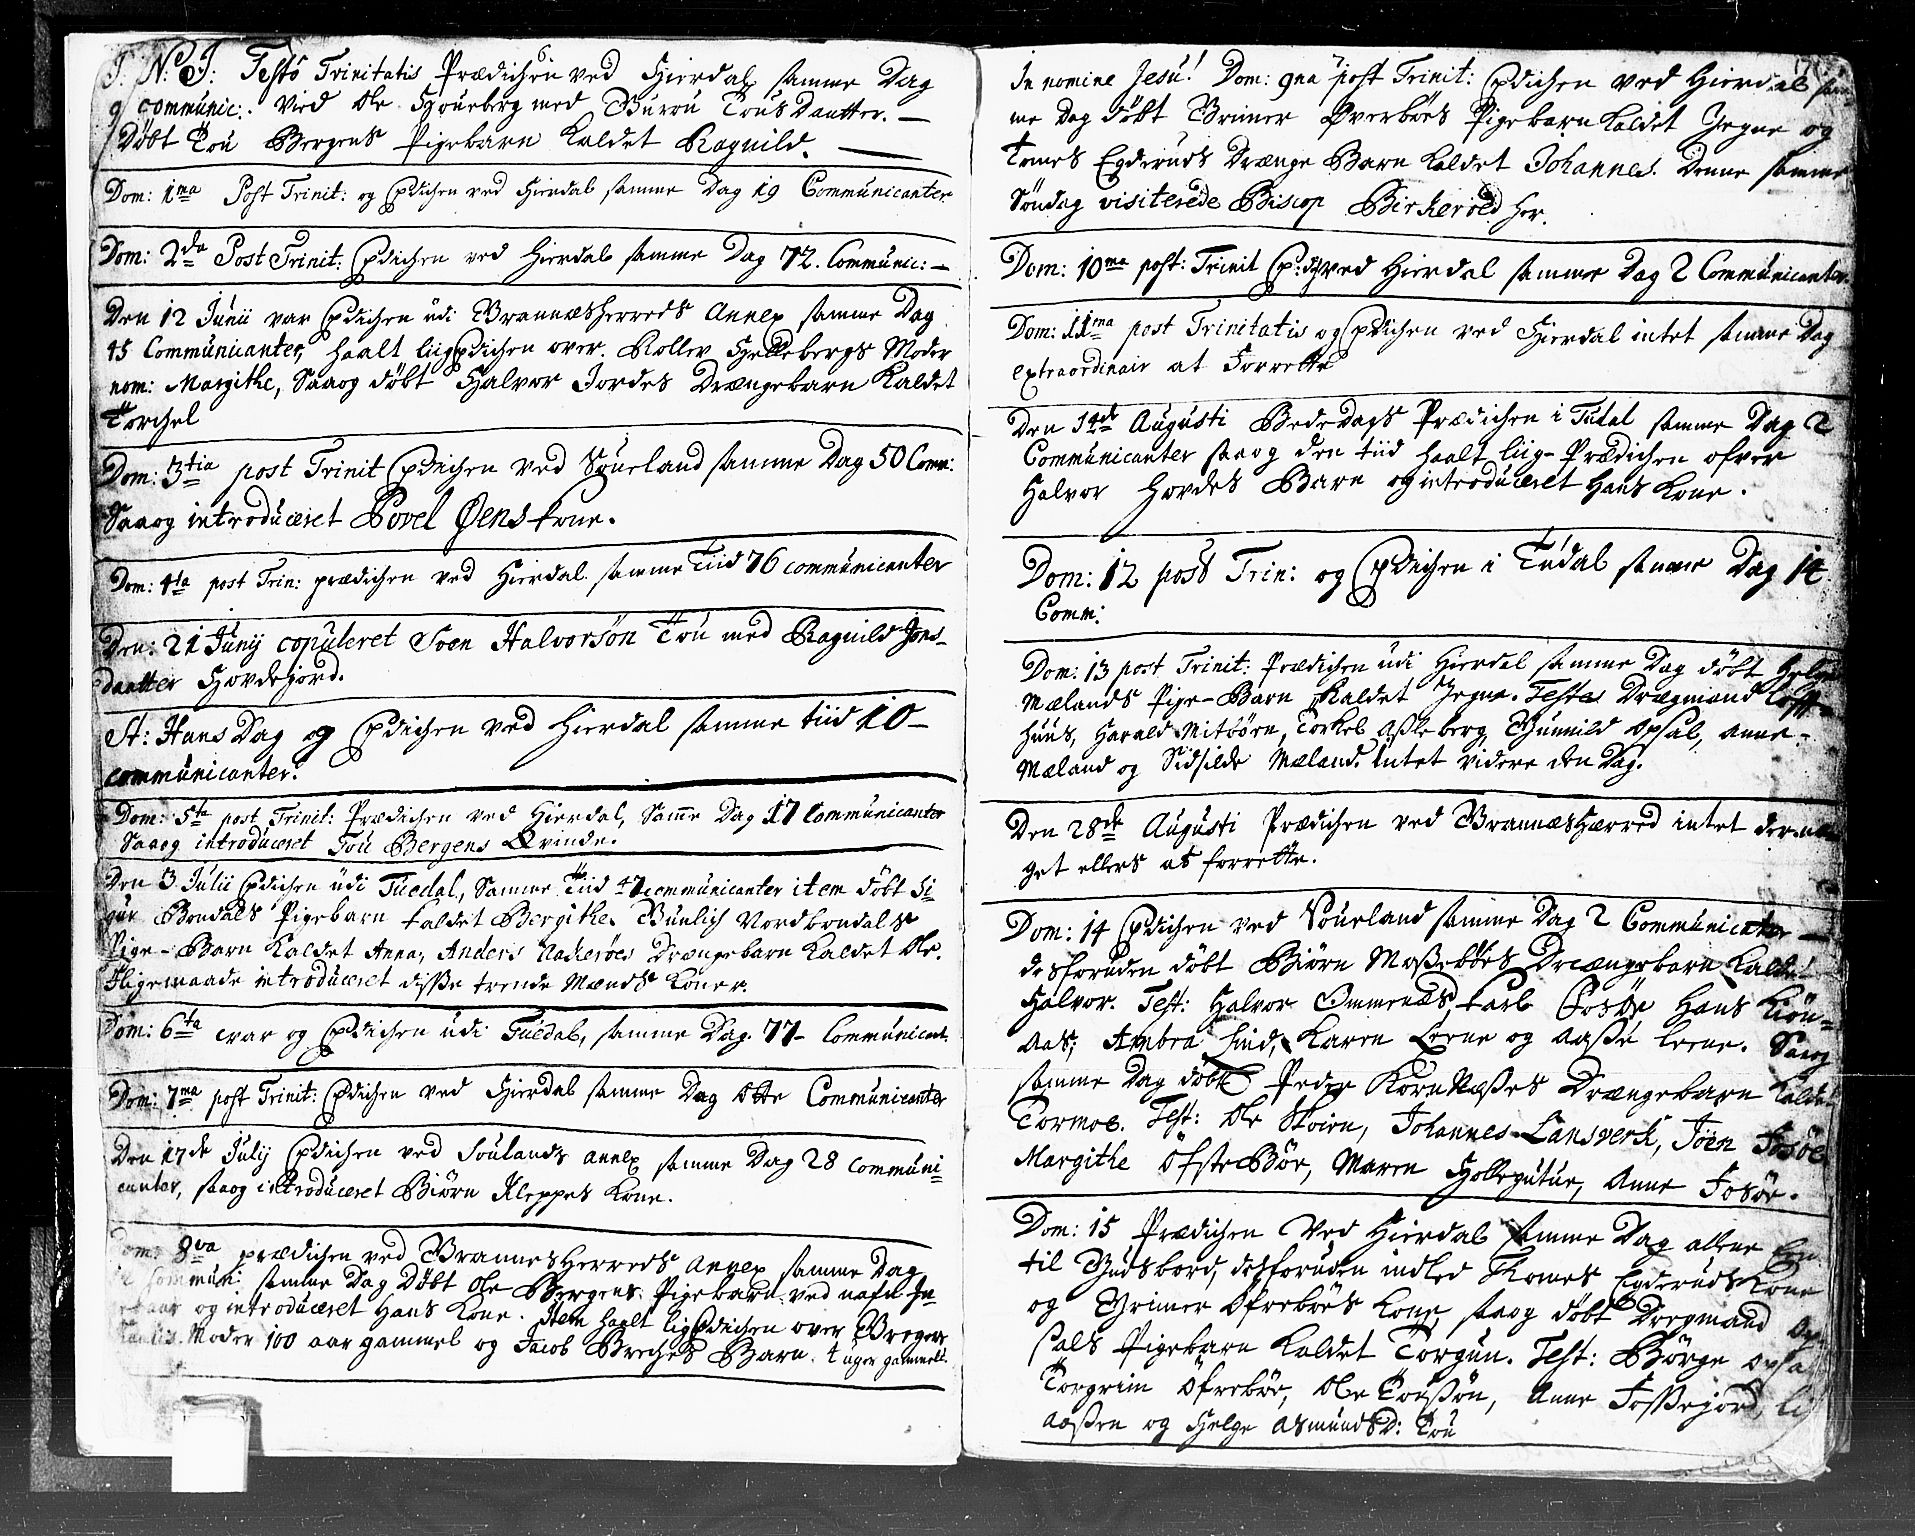 J: N: J: Festo Trinitatis Prædichen ved Hierdal samme Dag
9 communic: Vied Ole Houeberg med Gurou Tous Daatter. —
Døbt Tou Bergens Pigebarn kaldet Ragnild. —
Dom: 1ma Post Trinit: og Prædichen ved Hierdal samme Dag 19 Communicanter
Dom: 2da Post Trinit: Prædichen ved Hierdal samme Dag 72. Communic: —
Den 12 Junii var Prædichen udi Brannæsherreds Annex samme Dag
15 Communicanter, haalt liigPrædichen over Rollev Hellebergs Moder
nom: Margithe, Saaog døbt Halvor Jordes Drængebarn Kaldet
Torchel
Dom: 3tia post Trinit Prædichen ved Soueland samme Dag 50 Comm:
Saaog introduceret Povel Øens kone.
Dom: 4ta post Trin: prædichen ved Hierdal samme Tiid 76 communicanter
Den: 21 Junij copuleret Sven Halvorsøn Tou med Ragnild Jons-
daatter Hovdejord.
St: Hans Dag og Prædichen ved Hierdal samme tiid 10 —
communicanter.
Dom: 5ta post Trinit: Prædichen ved Hierdal, Samme Dag 17 Communicanter
Saaog introduceret Tou Bergens Qvinde.
Den 3 Julii Prædichen udi Tuedal, Samme Tiid 47 communicanter item døbt Si-
gur Bondals Pigebarn kaldet Bergithe. Gunlich Nordbondals
Pige-Barn Kaldet Anna, Anders Nakerøes Drængebarn Kaldet Ole.
Iligemaade introduceret disse trende Mænds Koner.
Dom: 6ta var og Prædichen udi Tuedal, samme Dag 77 — Communicant.
Dom: 7ma post Trinit: Prædichen ved Hierdal samme Dag Otte Communicanter
Den 17de Julij Prædichen ved Soulands annex samme Dag 28 Communi-
canter, saaog introduceret Biørn Kleppes Kone.
Dom: 8va prædichen ved Brannes Herreds Annex samme Dag
commun: samme Dag Døbt Ole Bergens Pigebarn ved nafn In-
og introduceret Hans Kone. Item haalt ligPrædichen over
Moder 100 aar gammel og Jacob Breches Barn. 4 uger gammelt.
In nomine Jesu! Dom: 9na post Trinit: Prædichen ved Hierdal sam-
me Dag døbt Grimer Øverbøes Pigebarn kaldet Jegne og
Tomes Egderuds Drænge Barn kaldet Johannes. Denne samme
Søndag visiterede Biscop Birkerød her.
Dom: 10ma post: Trinit Præd: ved Hierdal samme Dag 2 Communicanter.
Dom: 11ma post Trinitatis og Prædichen ved Hierdal intet samme Dag
extraordinair at Forrette
Den 14de Augusti BedeDags Prædichen i Tudal samme Dag 2
Communicanter saaog den tiid haalt liig-Prædichen ofver
Halvor Hovdes Barn og introduceret Hans kone.
Dom: 12 post Trin: og Prædichen i Tudal samme Dag 14
Comm:
Dom: 13 post Trinit: Prædichen udi Hierdal samme Dag døbt Helge
Mælands Pige-Barn Kaldet Jegne. Testes Drægmand Loft-
huus, Harald Mitbøen, Torkel Asleberg, Gunnild Opsal, Anne
Mæland og Sidsilde Mæland. Intet videre den Dag.
Den 28de Augusti Prædichen ved Brannæs Hærred intet der
get ellers at forrette.
Dom: 14 Prædichen ved Soueland samme Dag 2 Communicanter —
desforuden døbt Biørn Mossebøes Drængebarn Kaldet
Halvor. Test: Halvor Ommenæs, Carl Fosøe Hans Kiøn-
aas; Ambra Lind, Karen Leene og Aasse Leene. Saaog
samme Dag døbt Peder KornNæsses Drængebarn kaldet
Tormoe. Test: Ole Skoien, Johannes Lansverk, Jøen Fosøe
Margithe ØfsteBøe, Maren Hollegutue, Anne Fosøe.
Dom: 15 Prædichen Ved Hierdal samme Dag allene En
til Gudsbord, desforuden indled Thomes Egderuds Kone
og Grimer Øfrebøes Kone, saaog døbt Dregmand Op-
sals Pigebarn kaldet Torgun. Test: Børge Opsal
Torgrim Øfrebøe, Ole Tousøn, Anne Fossejord, Li
Aassen og Helge AsmundsD: Tou